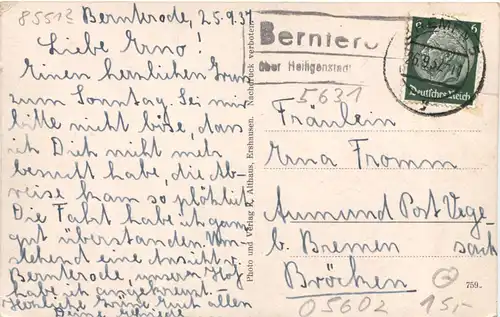 85513
Bernterode, 25.9.37
Liebe Erna!
Einen herzlichen Gruß
zum Sonntag. Sei mir
bitte nicht böse, dass
ich Dich nicht mehr
besucht habe, die Ab-
reise kam so plötzlich.
Die Fahrt habe ich ganz
gut überstanden. Um-
stehend eine Ansicht v.
Bernterode, unsern Hof
habe ich angekreuzt.
Herzliche Grüße Euch allen
Deine
Photo und Verlag R. Althaus, Ershausen. Nachdruck verboten
Bernterode
über Heiligenstadt
6 6
Deutsches Reich
5631
Fräulein
Erna Fromm
Aumund Post Vege-
b. Bremen sack
Bröcken
05602
15,-
759.